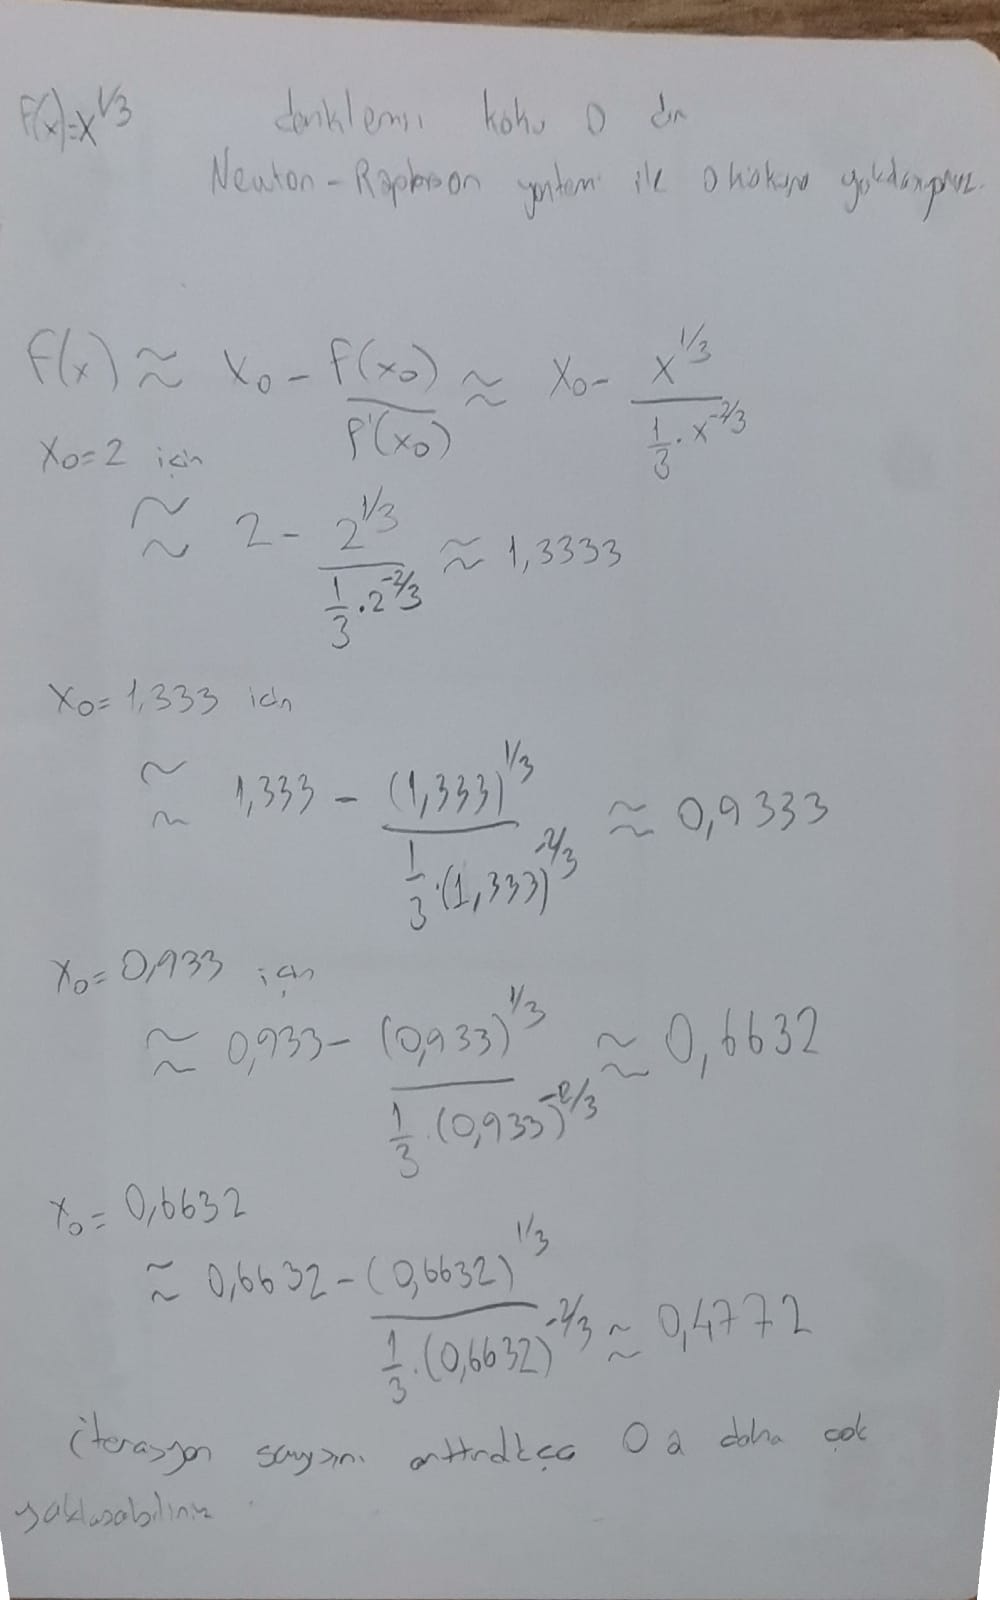 F(x)=x^1/3 denklemi kökü 0 dır
Newton-Raphson yöntemi ile 0 köküne yakınlaşıyoruz.
F(x) ≈ x₀ - F(x₀)/F'(x₀) ≈ x₀ - x^1/3 / (1/3 . x^-2/3)
x₀=2 için
≈ 2 - 2^1/3 / (1/3 . 2^-2/3) ≈ 1,3333
x₀= 1,333 için
≈ 1,333 - (1,333)^1/3 / (1/3 . (1,333)^-2/3) ≈ 0,9333
x₀= 0,933 için
≈ 0,933 - (0,933)^1/3 / (1/3 . (0,933)^-2/3) ≈ 0,6632
x₀= 0,6632
≈ 0,6632 - (0,6632)^1/3 / (1/3 . (0,6632)^-2/3) ≈ 0,4772
iterasyon sayısını arttırdıkça 0 a daha çok
yaklaşabiliriz